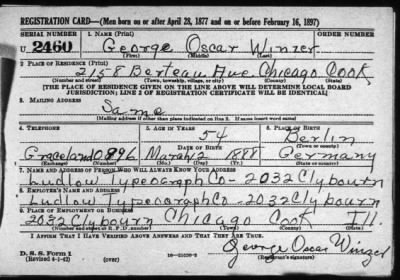 REGISTRATION CARD—(Men born on or after April 28, 1877 and on or before February 16, 1897)
SERIAL NUMBER 1. NAME (Print) ORDER NUMBER
U 2460 George Oscar Winzer
(First) (Middle) (Last)
2. PLACE OF RESIDENCE (Print)
2158 Berteau Ave Chicago Cook
(Number and street) (Town, township, village, or city) (County) (State)
[THE PLACE OF RESIDENCE GIVEN ON THE LINE ABOVE WILL DETERMINE LOCAL BOARD
JURISDICTION; LINE 2 OF REGISTRATION CERTIFICATE WILL BE IDENTICAL]
3. MAILING ADDRESS
Same
[Mailing address if other than place indicated on line 2. If same insert word same]
4. TELEPHONE 5. AGE IN YEARS 6. PLACE OF BIRTH
54 Berlin
DATE OF BIRTH (Town or county)
Graceland 0896 March 2 1888 Germany
(Exchange) (Number) (Mo.) (Day) (Yr.) (State or country)
7. NAME AND ADDRESS OF PERSON WHO WILL ALWAYS KNOW YOUR ADDRESS
Ludlow Typograph Co - 2032 Clybourn
8. EMPLOYER'S NAME AND ADDRESS
Ludlow Typograph Co - 2032 Clybourn
9. PLACE OF EMPLOYMENT OR BUSINESS
2032 Clybourn Chicago Cook Ill
(Number and street or R. F. D. number) (Town) (County) (State)
I AFFIRM THAT I HAVE VERIFIED ABOVE ANSWERS AND THAT THEY ARE TRUE.
George Oscar Winzer
D. S. S. Form 1 (Registrant's signature)
(Revised 4-1-42) (over)